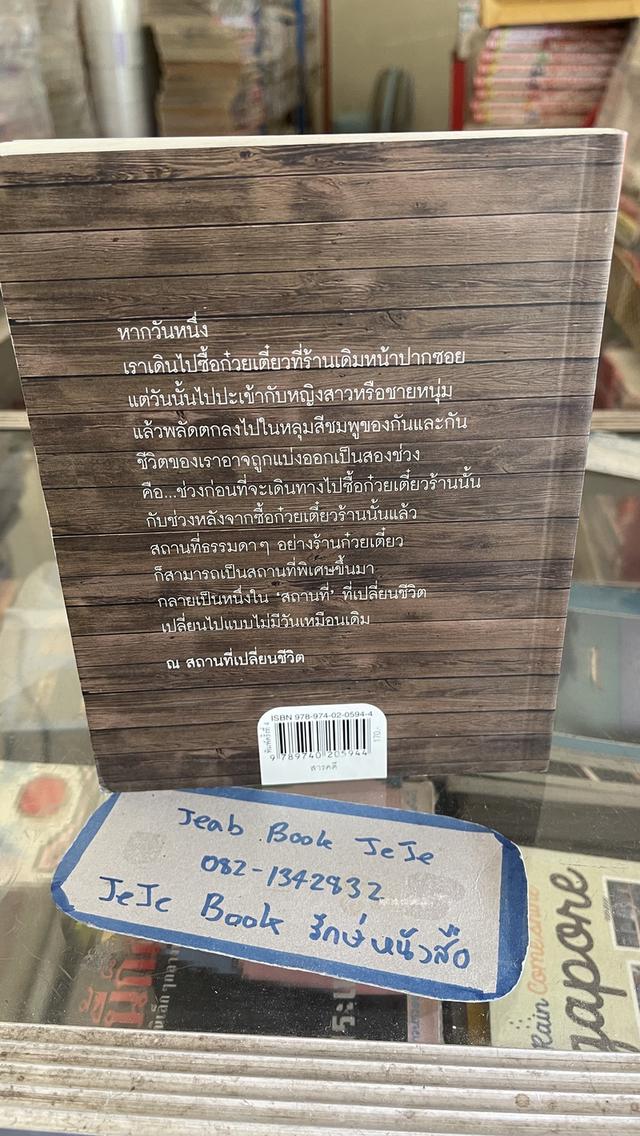 หากวันหนึ่ง
เราเดินไปซื้อก๋วยเตี๋ยวที่ร้านเดิมหน้าปากซอย
แต่วันนั้นไปปะเข้ากับหญิงสาวหรือชายหนุ่ม
แล้วพลัดตกลงไปในหลุมสีชมพูของกันและกัน
ชีวิตของเราอาจถูกแบ่งออกเป็นสองช่วง
คือ...ช่วงก่อนที่จะเดินทางไปซื้อก๋วยเตี๋ยวร้านนั้น
กับช่วงหลังจากซื้อก๋วยเตี๋ยวร้านนั้นแล้ว
สถานที่ธรรมดาๆ อย่างร้านก๋วยเตี๋ยว
ก็สามารถเป็นสถานที่พิเศษขึ้นมา
กลายเป็นหนึ่งใน ‘สถานที่’ ที่เปลี่ยนชีวิต
เปลี่ยนไปแบบไม่มีวันเหมือนเดิม
ณ สถานที่เปลี่ยนชีวิต
ISBN 978-974-02-0594-4
พิมพ์ครั้งที่ 4
170.-
9 789740 205944
สารคดี
Jeab Book JeJe
082-1342932
JeJe Book รักษ์หนัวสือ
Rain
apore